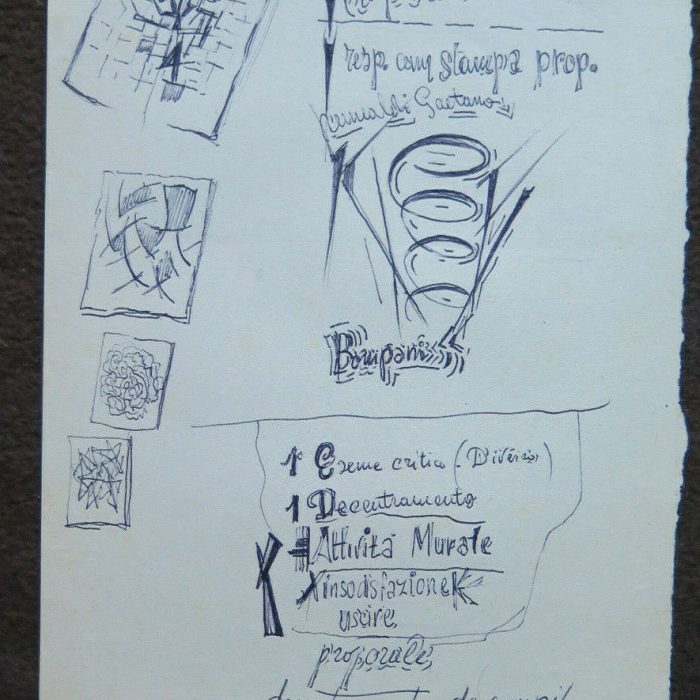 resp. com stampa prop.
Gaetano
Bompani
1° Esame critico (Diverso)
1 Decentramento
Attività Murale
X insodisfazione
uscire
proporale